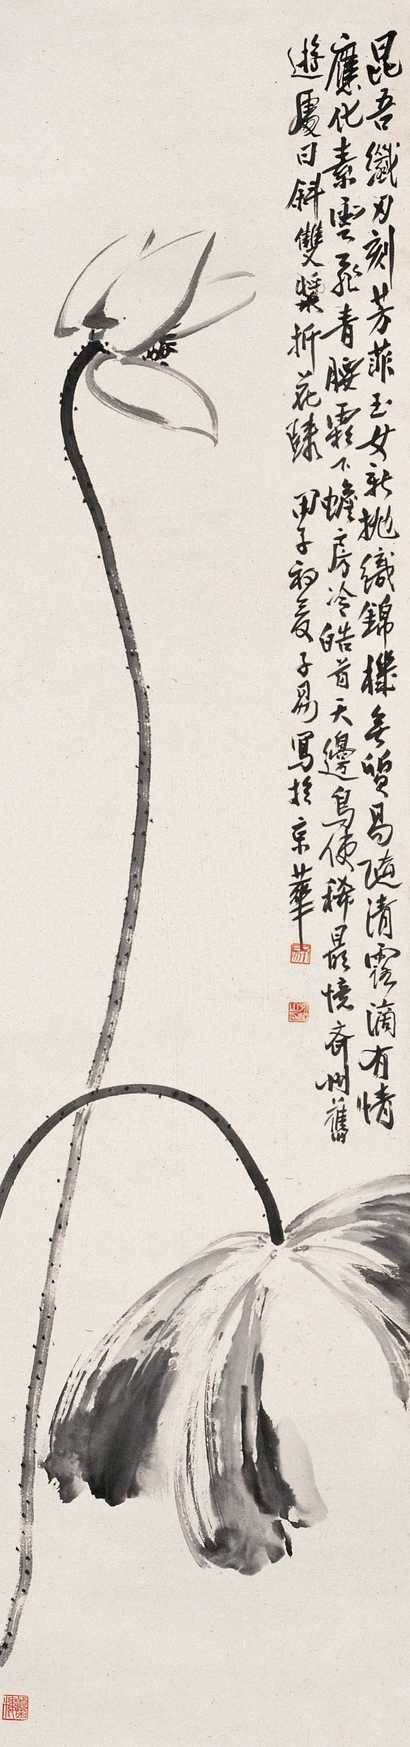 昆吾纖刃刻芳菲玉女新拋織錦機無質易隨清露滴有情
應化素雲飛青腰霜下蟾房冷皓首天邊鳥使稀最憶齊州舊
遊處日斜雙槳折花歸 甲子初夏子易寫於京華